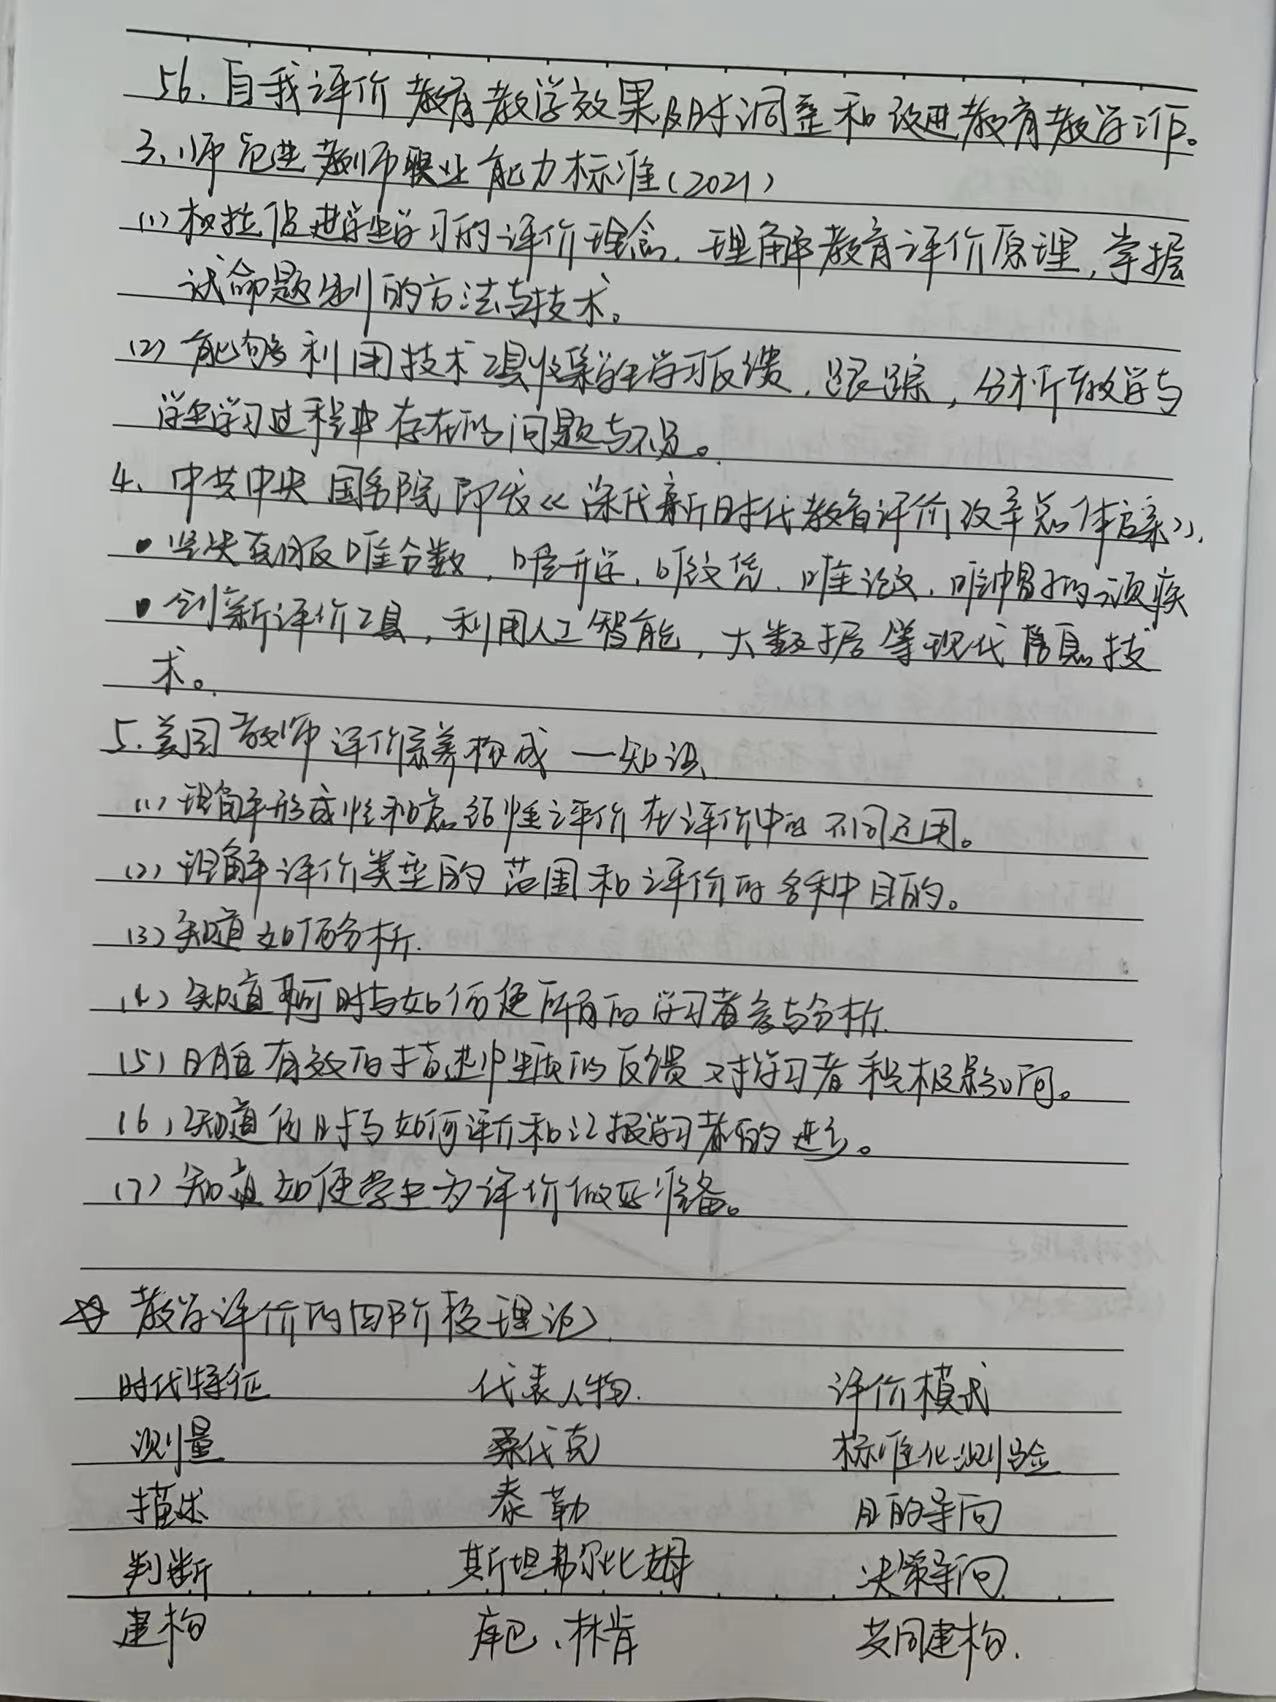 56、自我评价教育教学效果及时调整和改进教育教学工作。
3、师范生教师职业能力标准(2021)
(1) 树立促进学生学习的评价理念,理解教育评价原理,掌握
试命题的方法与技术。
(2) 能够利用技术工具收集学生学习反馈,跟踪,分析教学与
学生学习过程中存在的问题与不足。
4、中共中央国务院印发《深化新时代教育评价改革总体方案》,
• 坚决克服唯分数,唯升学,唯文凭,唯论文,唯帽子的顽疾
• 创新评价工具,利用人工智能,大数据等现代信息技
术。
5.美国教师评价素养构成—知识
(1) 理解形成性和总结性评价在评价中的不同运用。
(2) 理解评价类型的范围和评价的各种目的。
(3) 知道如何分析.
(4) 知道何时与如何使所有的学习者参与分析.
(5) 明确有效的描述性的反馈对学习者积极影响。
(6) 知道何时与如何评价和汇报学习者的进步。
(7) 知道如何使学生为评价做好准备。
☆ 教学评价的四阶段理论
时代特征 代表人物. 评价模式
测量 桑代克 标准化测验
描述 泰勒 目的导向
判断 斯坦弗尔比姆 决策导向
建构 库巴、林肯 共同建构.